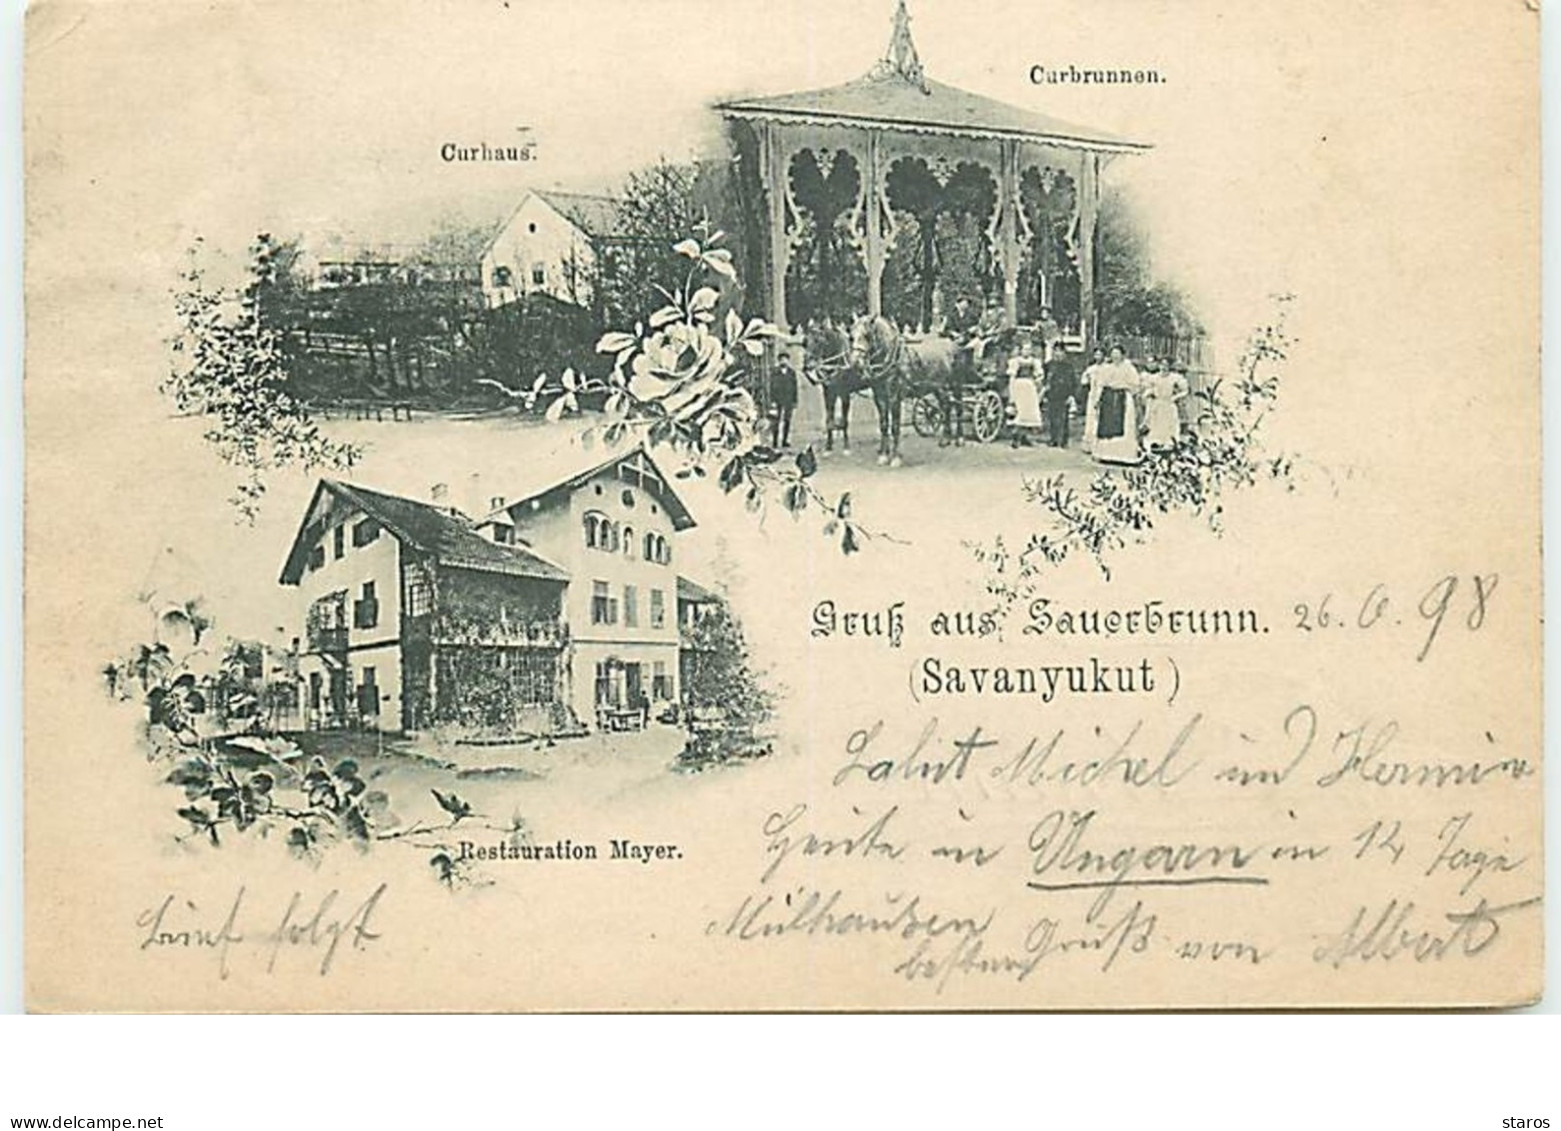 Curbrunnen.
Curhaus.
Gruß aus Sauerbrunn. 26. 6. 98
(Savanyukut)
Salut Michel und Hermine
Heute in Ungarn in 14 Tage
Mülhausen
besten Gruß von Albert
Restauration Mayer.
Brief folgt
delcampe.net
staros